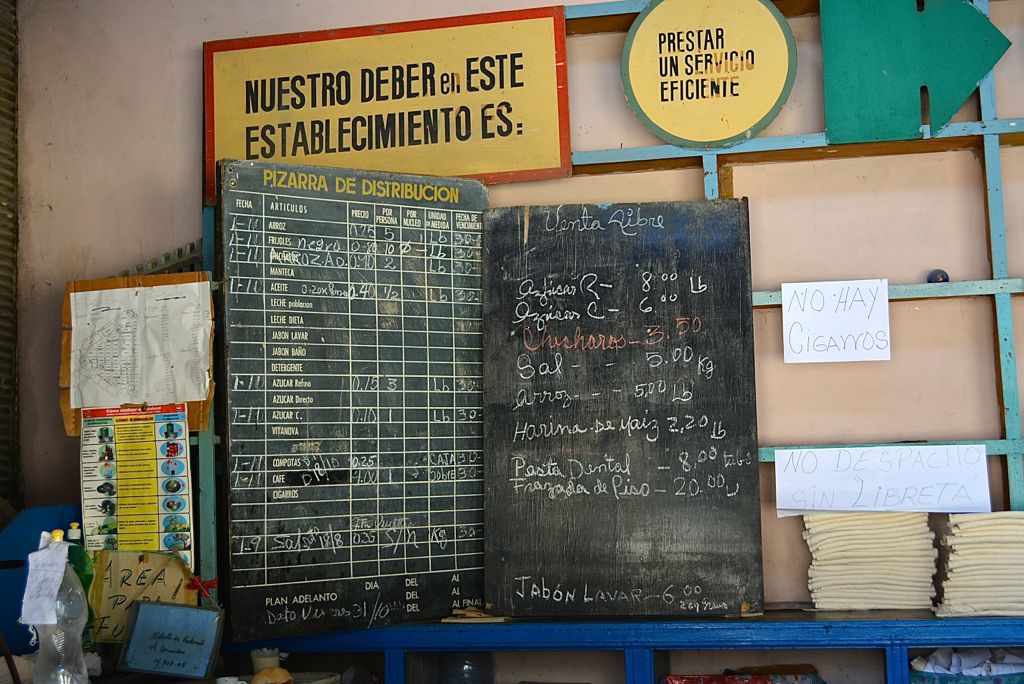 NUESTRO DEBER en ESTE
ESTABLECIMIENTO ES:
PRESTAR
UN SERVICIO
EFICIENTE
PIZARRA DE DISTRIBUCION
FECHA ARTICULOS PRECIO POR PERSONA POR NUCLEO UNIDAD DE MEDIDA FECHA DE VENCIMIENTO
1-11 ARROZ 0.25 5 Lb 30-
1-11 FRIJOLES negro 0-80 10 Lb 30-
1-11 2 Lb 30-
MANTECA
1-11 ACEITE 0.40 1/2 Lb 30-
LECHE poblacion
LECHE DIETA
JABON LAVAR
JABON BAÑO
DETERGENTE
1-11 AZUCAR Refino 0.15 3 Lb 30-
AZUCAR Directo
1-11 AZUCAR C. 0.10 1 Lb 30-
VITANOVA
1-11 COMPOTAS 0.25 1 30-
1-11 CAFE 4.00 1 SOBRE 30-
CIGARROS
1-9 Sal 0.35 C/N Kg 30-
PLAN ADELANTO DIA DEL AL
31/10 DEL AL
DEL AL FINAL
Venta Libre
Azúcar R - 8.00 Lb
Azúcar C - 6.00
Chicharos - 3.50
Sal - - 5.00 Kg
Arroz - - - 5,00 Lb
Harina de Maiz 2,20 Lb
Pasta Dental - 8,00 tubo
Frazada de Piso - 20.00 u
Jabón Lavar - 6.00
NO HAY
CIGARROS
NO DESPACHO
SIN LIBRETA
AREA
PARA
FU